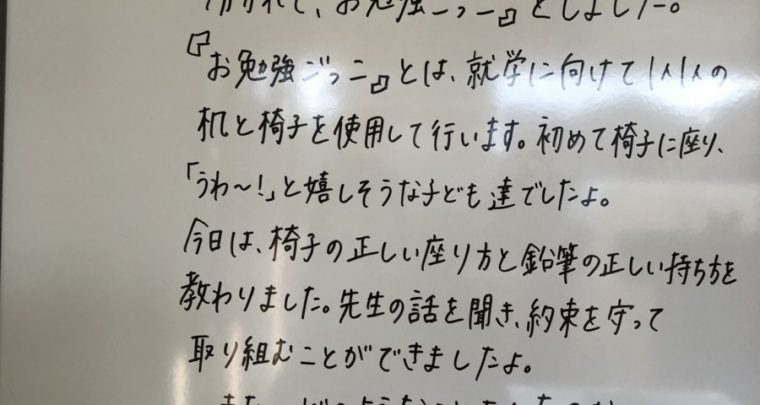 れて、お勉強ごっこ』をしました。
『お勉強ごっこ』とは、就学に向けて1人1人の
机と椅子を使用して行います。初めて椅子に座り、
「うわ〜!」と嬉しそうな子ども達でしたよ。
今日は、椅子の正しい座り方と鉛筆の正しい持ち方を
教わりました。先生の話を聞き、約束を守って
取り組むことができましたよ。